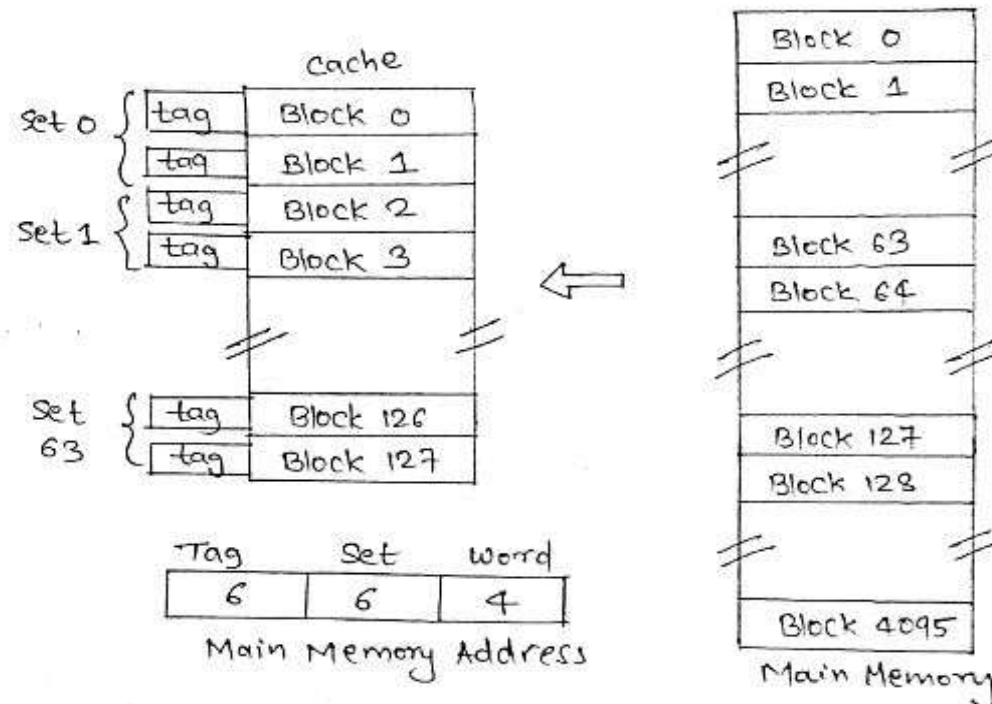 cache
Set 0
tag
Block 0
tag
Block 1
Set 1
tag
Block 2
tag
Block 3
Set
63
tag
Block 126
tag
Block 127
Tag Set Word
6 6 4
Main Memory Address
Block 0
Block 1
Block 63
Block 64
Block 127
Block 128
Block 4095
Main Memory